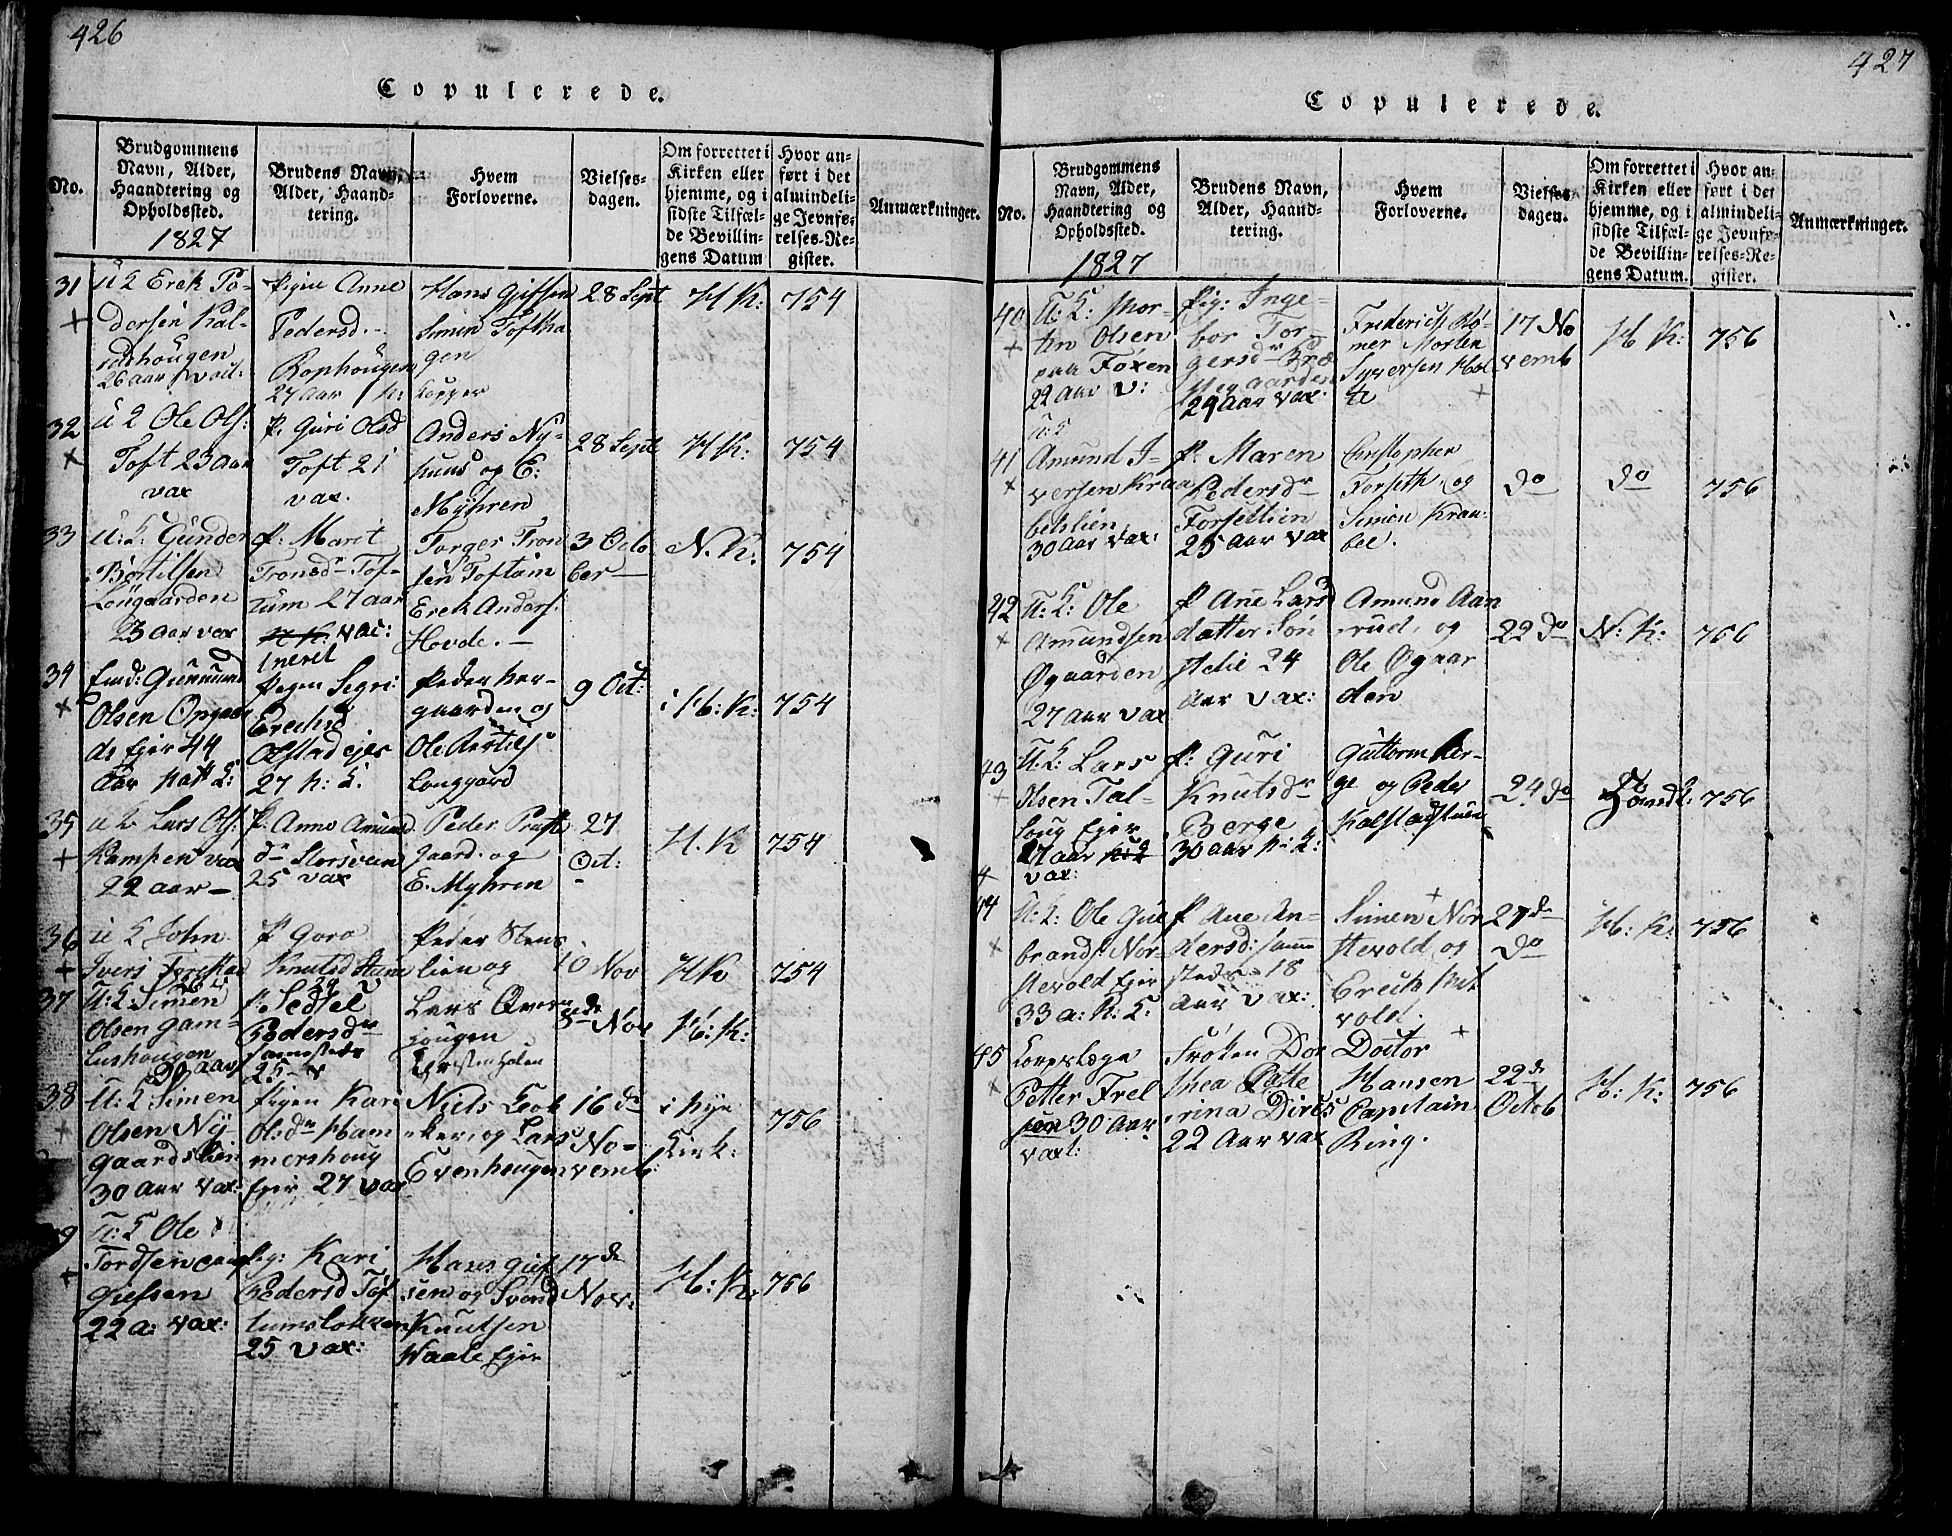 426
Copulerede.
No.
Brudgommens
Navn, Alder,
Haandtering og
Opholdssted.
1827
Brudens Navn,
Alder, Haand-
tering.
Hvem
Forloverne.
Vielses-
dagen.
Om forrettet i
Kirken eller
hjemme, og i
sidste Tilfæl-
de Bevillin-
gens Datum
Hvor an-
ført i det
almindeli-
ge Jevnfø-
relses-Re-
gister.
Anmærkninger.
31
+
U K Erek Pe-
dersen
26 aar
Pigen Anne
Pedersd.
Rophougen
27 aar
Hans
Simen
28 Sept
H K:
754
32
+
Ole Ols:
Toft 23 aar
vax
P. Guri Olsd
Toft 21
vax.
Anders Ny-
huus og E:
Myhren
28 Sept
H K:
754
33
U: K: Gunder
Bertilsen
Lougaarden
23 aar vax
P: Marit
Tronsd Tof-
tum 27 aar
vac:
Torger Tron
sen Toftum
Erek Anders:
Hovde. —
3 Octo
ber —
N. K:
754
34
+
Gunnund
Olsen
Ejer 44
Aar
Pigen Segri
Erechsd
Olstad ejer
27 K: K:
Peder
gaarden og
Ole Bertils
Lauggaard
9 Oct:
i H: K:
754
35
+
Lars Ols:
Kampen vax
22 aar —
P: Anne Amund
dr Storsveen
25 vax
Peder Preste
gaard. og
E. Myhren
27
Oct:
H. K
754
36
+
U K John
Ivers
P Goro
Knutsd
29
Peder Stens
lien og
10 Nov
H K
754
37
U: K: Simen
Olsen Gam-
lushougen
30 aar
P: Sedsel
Pedersdr
samesteds
25
Lars Overn
hougen
Nov
H: K:
38
+
U: K Simen
Olsen Ny-
gaardslien
30 aar vax:
Pigen Kari
Olsdr Ham
mershoug
Ejer 27 vax
Niels
og Lars
Evenhougen
16 de
No-
vemb:
i Nye
Kirk:
756
39
+
U: K Ole
Tordsen
22 a: vax:
Pig: Kari
Pedersd Tof
tumslokken
25 vax:
Hans
sen og Svend
Knutsen
Waale Ejer
17 de
Nov:
H: K:
756
427
Copulerede.
No.
Brudgommens
Navn, Alder,
Haandtering og
Opholdssted.
1827
Brudens Navn,
Alder, Haand-
tering.
Hvem
Forloverne.
Vielses-
dagen.
Om forrettet i
Kirken eller
hjemme, og i
sidste Tilfæl-
de Bevillin-
gens Datum.
Hvor an-
ført i det
almindeli-
ge Jevnfø-
relses-Re-
gister.
Anmærkninger.
40
+
U: K: Mor-
ten Olsen
22 Aar V:
Pig: Inge-
bor Tor-
gersdr
29 Aar vax.
Frederich Rø-
mer Morten
Syversen Hol
te
17 No
vemb
H K:
756
41
+
Amund I-
versen Kraa
belslien
30 Aar Vax:
P: Maren
Pedersdr
Forsetlien
25 Aar Vax
Christopher
Forseth og
Simen Kraa-
bøl.
do
do
756
42
+
U: K: Ole
Amundsen
Øgaarden
27 Aar Vax
P Ane Larsd
datter Søn
stelie 24
Aar Vax:
Amund Aan
rud, og
Ole Øgaar
den
22 do
N: K:
756
43
+
U: K: Lars
Olsen Tal-
loug Ejer
27 Aar
vax:
P: Guri
Knutsdr
Berge
30 aar K: K:
Guttorm Ber-
ge og Peder
Kalstadstuen
24 do
756
44
+
U: K: Ole Gul
brands Nor-
stevold Ejer
33 a: K: K:
P Ane An-
dersd: samme
steds 18
Aar Vax:
Simen Nor
stevold og
Erick
vold.
27 de
do
H: K:
756
45
+
Corpslæge
Petter Frel
sen 30 Aar
vaxt:
Frøken Dor
thea Catte
rina Dircs
22 Aar Vax
Doctor
Hansen
Capitain
Ring.
22 de
Octob
H: K:
756